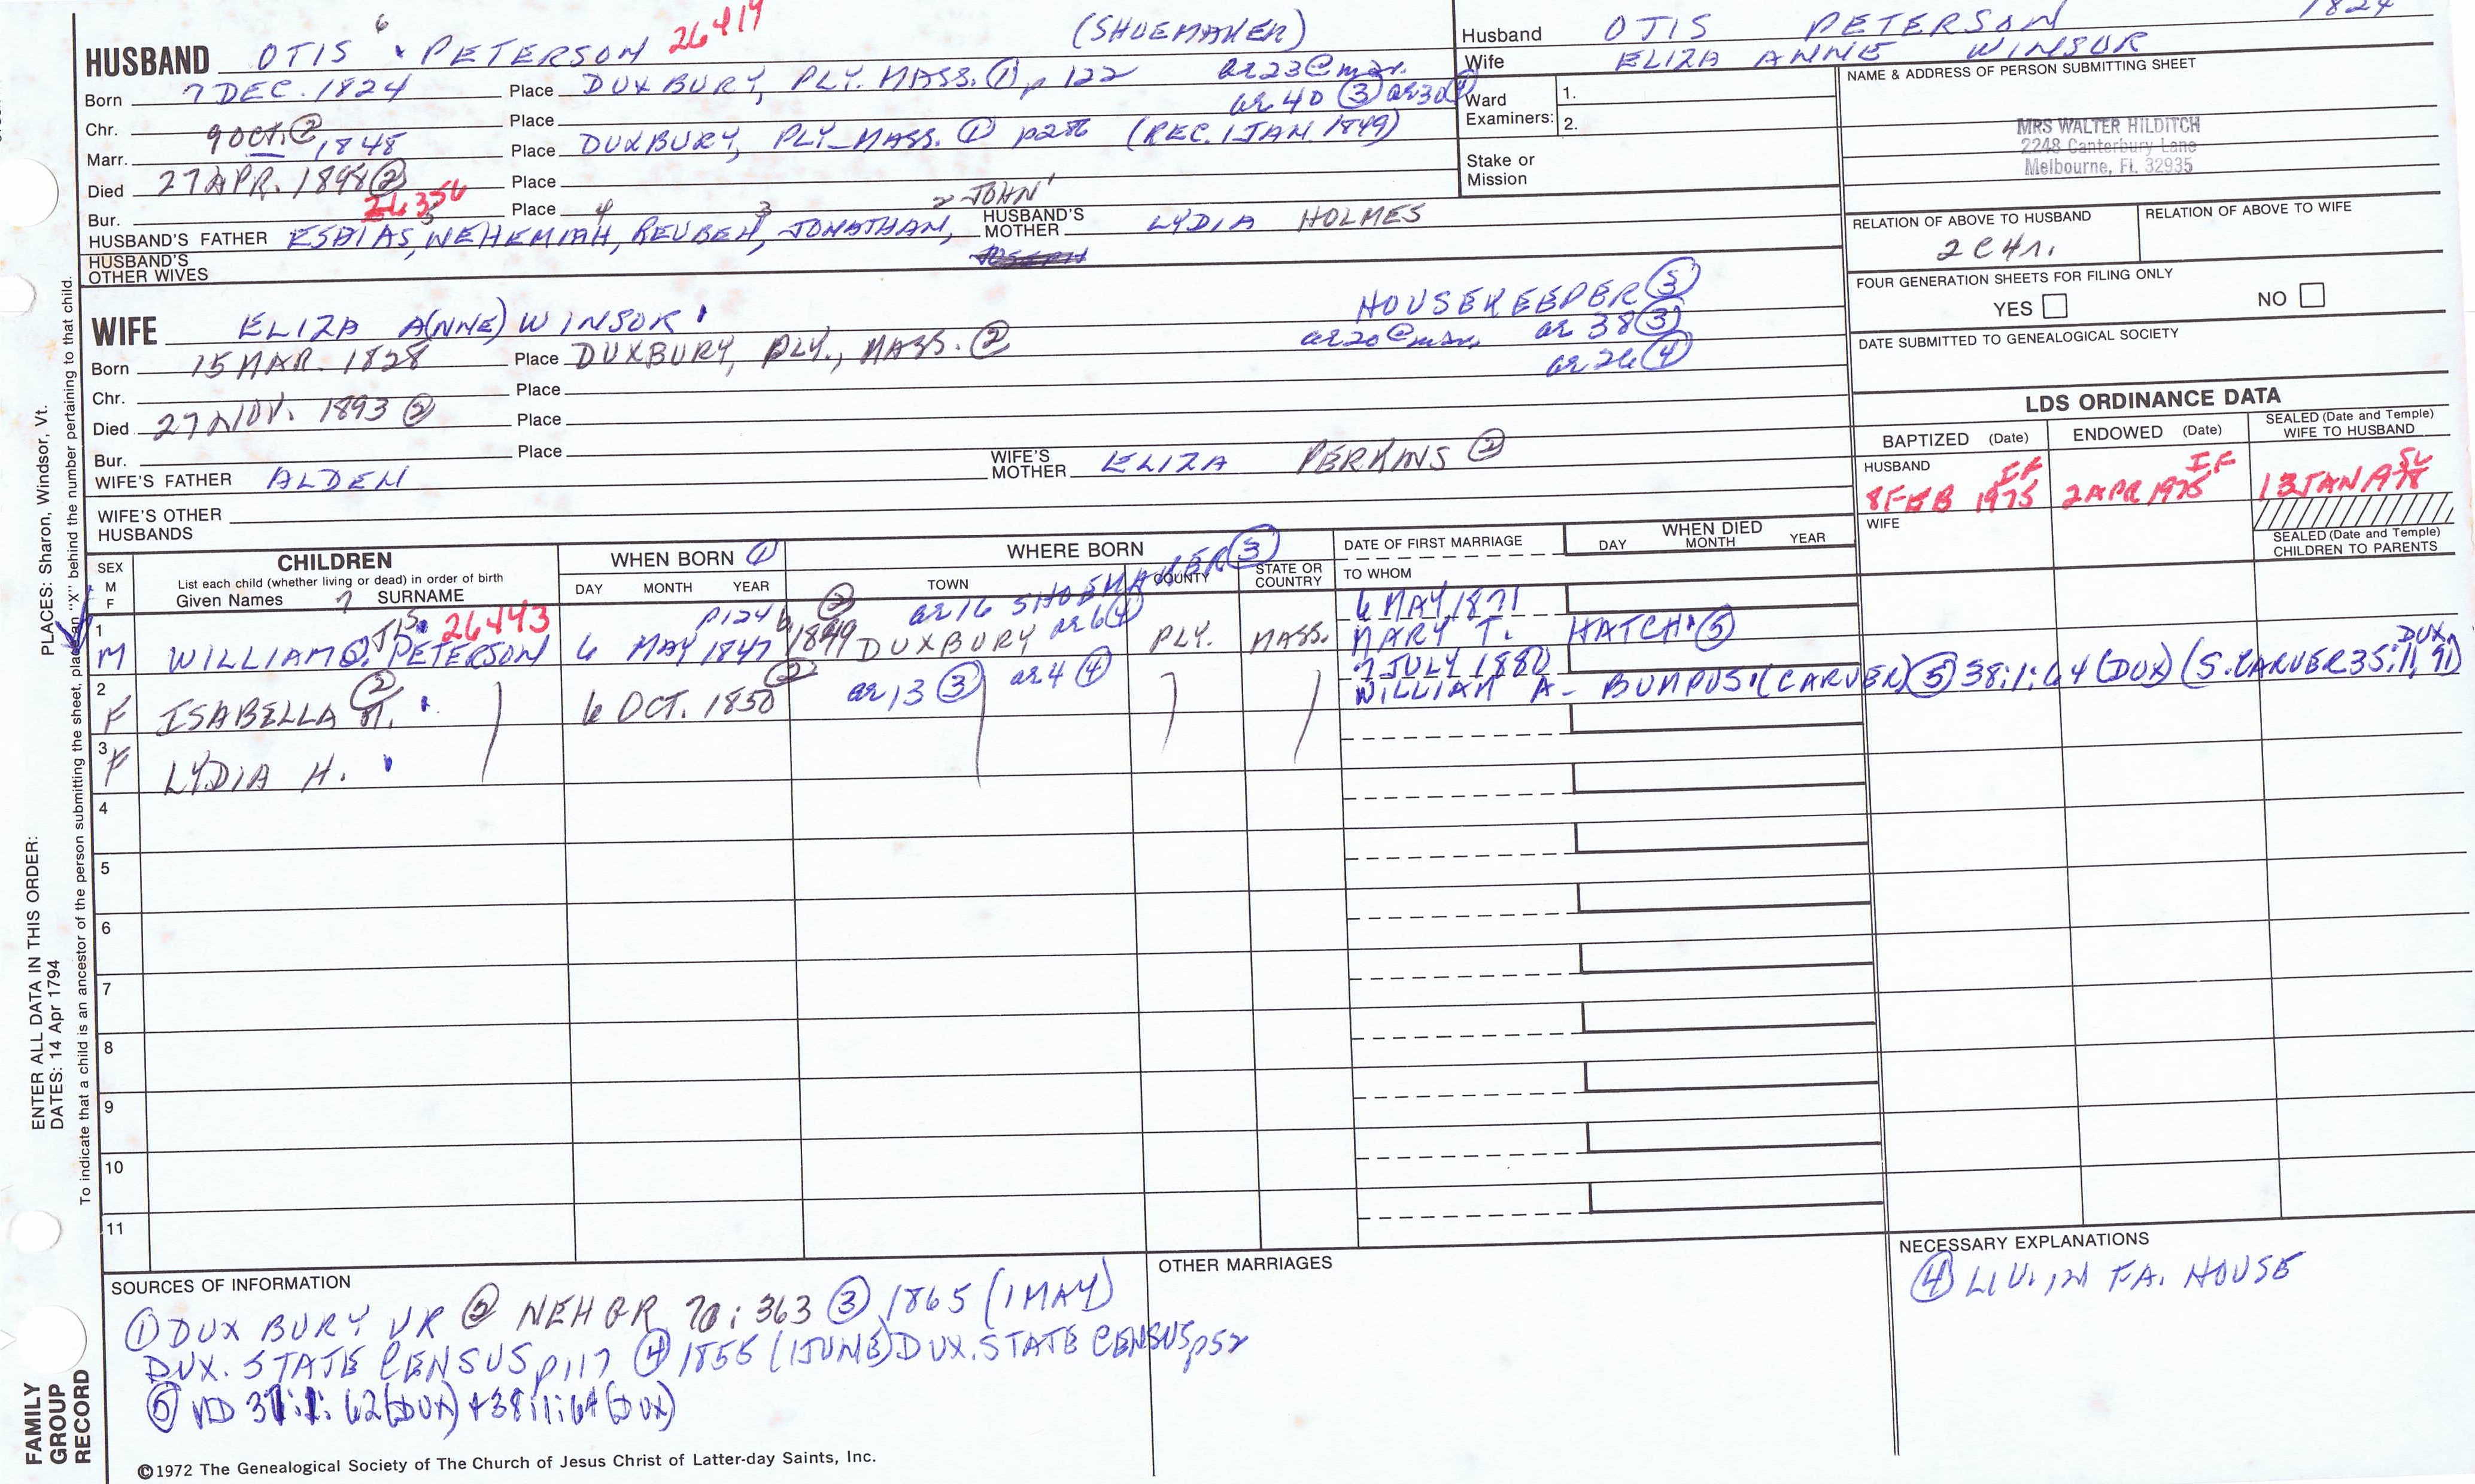 HUSBAND OTIS 6 PETERSON 26419 (SHOEMAKER)
Husband OTIS PETERSON 1824
Wife ELIZA ANNE WINSOR
Born 7 DEC. 1824 Place DUXBURY, PLY. MASS. ① p 122 ae 23 @ mar.
ae 40 ③ ae 30 ④
Chr. Place
Marr. 9 OCT. ② 1848 Place DUXBURY, PLY. MASS. ① (REC. 1 JAN. 1849)
Died 27 APR. 1898 ② Place
Bur. Place
26356 5 4 3 2 JOHN 1
HUSBAND'S FATHER ESAIAS, NEHEMIAH, REUBEN, JONATHAN, HUSBAND'S MOTHER LYDIA HOLMES
HUSBAND'S OTHER WIVES
Ward Examiners: 1.
2.
Stake or Mission
NAME & ADDRESS OF PERSON SUBMITTING SHEET
MRS WALTER HILDITCH
2248 Canterbury Lane
Melbourne, FL 32935
RELATION OF ABOVE TO HUSBAND RELATION OF ABOVE TO WIFE
2 C 4 r.
FOUR GENERATION SHEETS FOR FILING ONLY
YES NO
DATE SUBMITTED TO GENEALOGICAL SOCIETY
WIFE ELIZA A(NNE) WINSOR HOUSEKEEPER ③
ae 20 @ mar. ae 38 ③
ae 26 ④
Born 15 MAR. 1828 Place DUXBURY, PLY., MASS. ②
Chr. Place
Died 27 NOV. 1893 ② Place
Bur. Place
WIFE'S FATHER ALDEN WIFE'S MOTHER ELIZA PERKINS ②
WIFE'S OTHER HUSBANDS
LDS ORDINANCE DATA
BAPTIZED (Date) ENDOWED (Date) SEALED (Date and Temple) WIFE TO HUSBAND
HUSBAND 8 FEB 1975 IF 2 APR 1975 IF 13 JAN 1978 SL
WIFE
SEALED (Date and Temple) CHILDREN TO PARENTS
SEX M F
CHILDREN
List each child (whether living or dead) in order of birth
Given Names 7 SURNAME
WHEN BORN ①
DAY MONTH YEAR
WHERE BORN
TOWN COUNTY STATE OR COUNTRY
DATE OF FIRST MARRIAGE
TO WHOM
WHEN DIED
DAY MONTH YEAR
p124 ② ae 16 SHOEMAKER ③ ae 6 ④ 6 MAY 1871
1 M WILLIAM O(TIS) PETERSON 26443 6 MAY 1847 1849 DUXBURY PLY. MASS. MARY T. HATCH ⑤
7 JULY 1880
2 F ISABELLA H. ② 6 OCT. 1850 ② ae 13 ③ ae 4 ④ WILLIAM A. BUMPUS (CARVER) ⑤ 38:1:64 (DUX) (S. CARVER 35:11, DUX 91)
3 F LYDIA H.
4
5
6
7
8
9
10
11
SOURCES OF INFORMATION
① DUXBURY VR ② NEHGR 70:363 ③ 1865 (1 MAY)
DUX. STATE CENSUS p117 ④ 1855 (1 JUNE) DUX. STATE CENSUS p52
⑤ VD 37:1:62 (DUX) + 38:1:64 (DUX)
OTHER MARRIAGES
NECESSARY EXPLANATIONS
④ LIV. IN FA. HOUSE
©1972 The Genealogical Society of The Church of Jesus Christ of Latter-day Saints, Inc.
FAMILY GROUP RECORD
ENTER ALL DATA IN THIS ORDER:
DATES: 14 Apr 1794
PLACES: Sharon, Windsor, Vt.
To indicate that a child is an ancestor of the person submitting the sheet, place an "X" behind the number pertaining to that child.